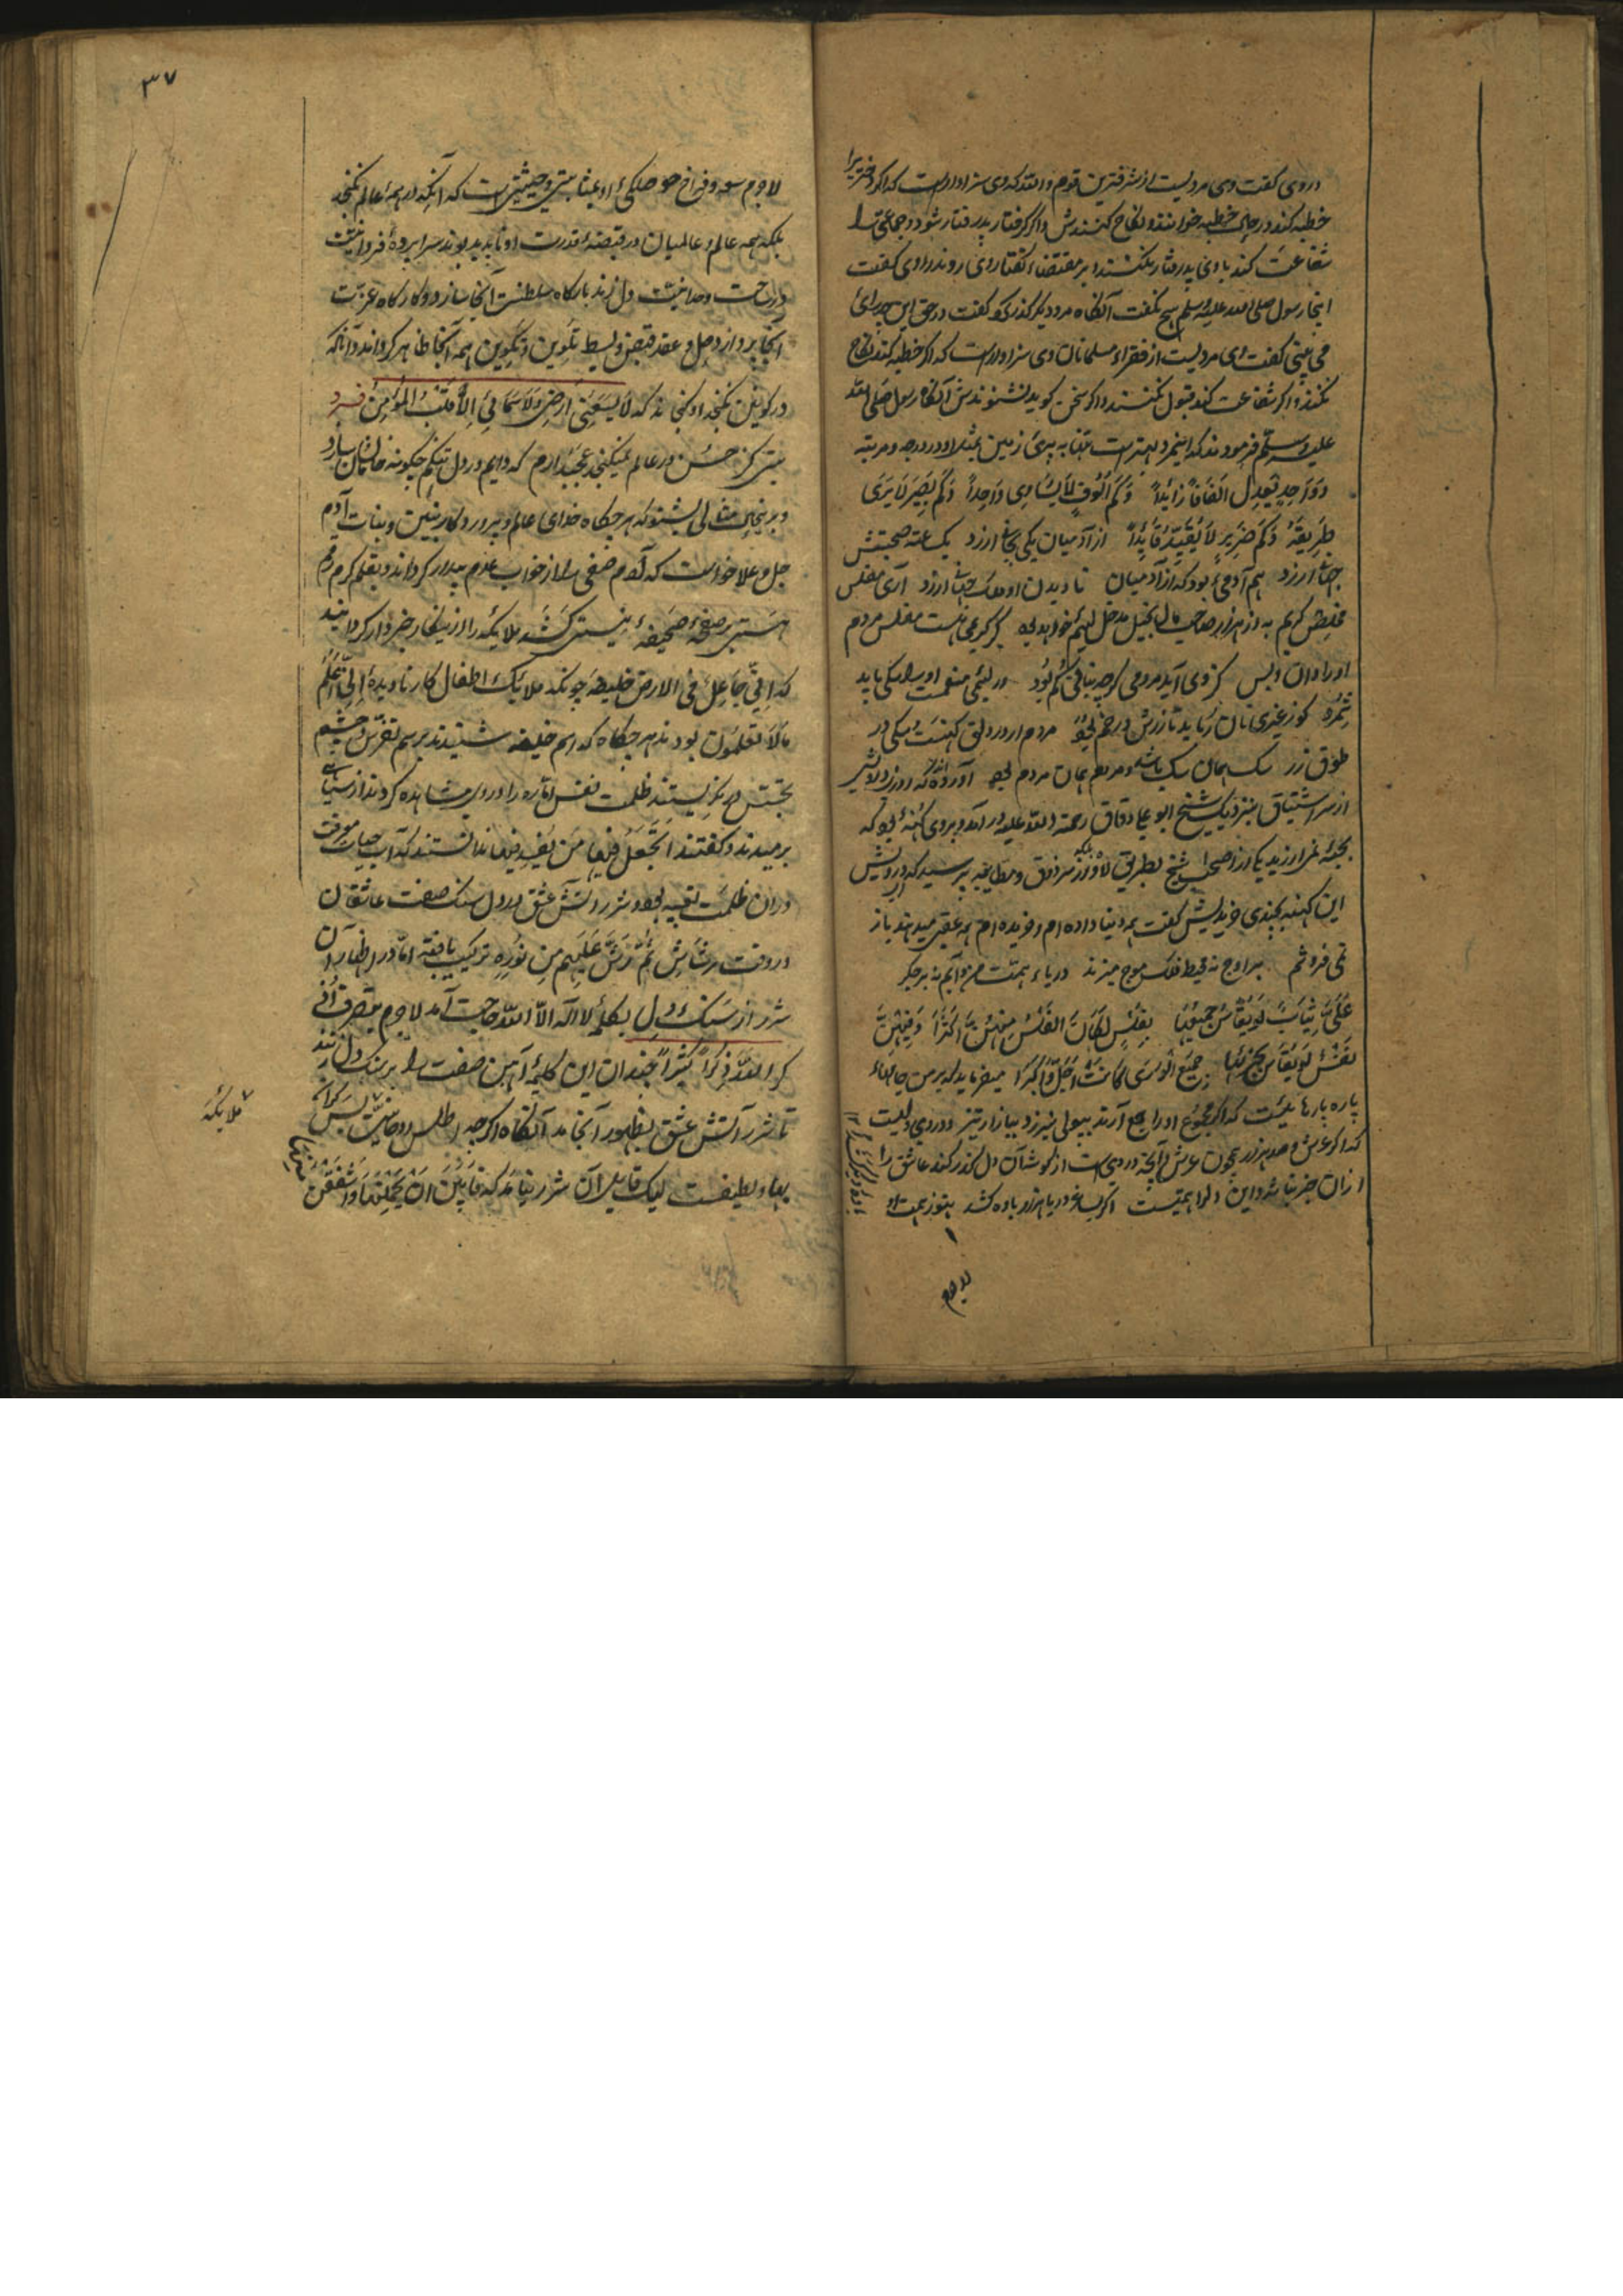 در وی گفت وی مردیست از شرفترین قوم والله که وی سزاوارست که اگر دختریرا
خطبه کند در جای خطبه خوانند و نکاح کنندش و اگر گرفتار بدرفتار شود و جماعتی را
شفاعت کند با وی بدرفتار نکنند و بر مقتضاء گفتار وی روند راوی گفت
اینجا رسول صلی الله علیه وسلم هیچ نگفت آنگاه مرد دیگر گذر کرد گفت در حق این چه رای
می بینی گفت ای مردیست از فقراء مسلمانان وی سزاوارست که اگر خطبه کند نکاح
نکنند و اگر شفاعت کند قبول نکنند و اگر سخن گوید نشنوندش آنگاه رسول صلی الله
علیه وسلم فرمودند که اینمرد بهترست بمثابه پری زمین مثل او در درجه و مرتبه
و واحد یعدل الفا زائدا وکم الوف لا یساوی واحدا وکم بصیر لا یری
طریقه وکم ضریر لا یقید قایدا از آدمیان یکی بجانی ارزد یکساعته صحبتش
جهانی ارزد هم آدمیی بود که از آدمیان نادیدن او ملک جهانی ارزد آری مفلس
مخلص کریم به از هزار صاحب مال بخیل مدخل لئیم خواهد بود گر کریمی هست مفلس مردم
او را دان و بس کز وی آید مردمی گرچه بنانی کم بود ور لئیمی منعمست او را سگی باید
شمرد کو ز غیری نان رباید تا زرش در خم بود مردم ار در دلق کهنست و سگی در
طوق زر سگ همان سگ باشد و مردم همان مردم بود آورده اند که روزی درویشی
از سر اشتیاق بنزدیک شیخ ابو علی دقاق رحمة الله علیه در آمد و بر وی کهنهٔ بود که
بجبهٔ نمی ارزید یکی از اصحاب شیخ بطریق لاغ بلکه از سر ذوق و مطایبه پرسید که ای درویش
این کهنه بچندی خریدیش گفت همه دنیا داده ام و خریده ام همه عقبی میدهند باز
نمی فروشم بر اوج نه محیط فلک موج میزند دریاء همتت من و آبم نه بر جگر
علی ثیاب لو یقاس جمیعها بفلس لکان الفلس منهن اکثرا وفیهن
نفس لو یقاس ببعضها جمیع الوری کانت اجل واکبرا میفرماید که بر من جامهاء
پاره پاره هایست که اگر مجموع او را جمع آرند بپولی نیرزد ببازار تیز و در وی دلیست
که اگر عرش و صد هزار همچون عرش و آنچه در ویست از گوشهٔ آن دل گذر کند عاشق را
از آن خبر نباشد و این دل را همتیست اگر بساغر دریا هزار باده کشد هنوز همت او
لاجرم
۳۷
لاجرم سعه و فراخ حوصلگی او بمثابتی و حیثیتی است که آنکه در همه عالم نگنجد
بلکه همه عالم و عالمیان در قبضهٔ قدرت او ناپدید بوند سراپردهٔ فردانیت
در ساحت وحدانیت دل زند بارگاه سلطنت آنجا سازد و کارگاه عزت
آنجا پردازد حل و عقد قبض و بسط تلوین و تکوین همه آنجا ظاهر گرداند و آنکه
در کونین نگنجد او گنجاند که لا یسعنی ارضی ولا سمائی الا قلب المؤمن فرد
بیتی کز حسن در عالم نمیگنجد عجب دارم که دایم در دل تنگم چگونه خانمان سازد
و بر ینجای مثالی بشنو که هر چگاه خدای عالم و پرورد کار بنین و بنات آدم
جل و علا خواست که آدم صفی را از خواب عدم بیدار گرداند و بقلم کرم رقم
هستی بر صفحهٔ صحیفهٔ نیستی کشد ملایکه را از ینکار خبردار گردانید
که انی جاعل فی الارض خلیفه چونکه ملایک اطفال کار نادیدهٔ انی اعلم
ما لا تعلمون بودند هر چگاه که اسم خلیفه شنیدند برسم تفرس و چشم
تجسس در نگریستند ظلمت نفس اماره را در وی مشاهده کردند از سیاهی
برمیدند و گفتند اتجعل فیها من یفسد فیها ندانستند که آب حیات معرفت
در آن ظلمت تعبیه بود و شرر آتش عشق در دل سنگ صفت عاشقان
در وقت رشاش ثم رش علیهم من نوره ترکیب یافته اما در اظهار آن
شرر از سنگ دل بکلمهٔ لا اله الا الله حاجت آمد لاجرم بتصرف اذ
کروا الله ذکرا کثیرا چندان این کلمهٔ آهن صفت را بر سنگ دل زنند
تا شرر آتش عشق بظهور آنجامد آنگاه اگرچه اطلس روحانیت بس گرانـ
بها و لطیفست لیک قابل آن شرر نیامد که فابین ان یحملنها واشفقن
منها
ملایکه